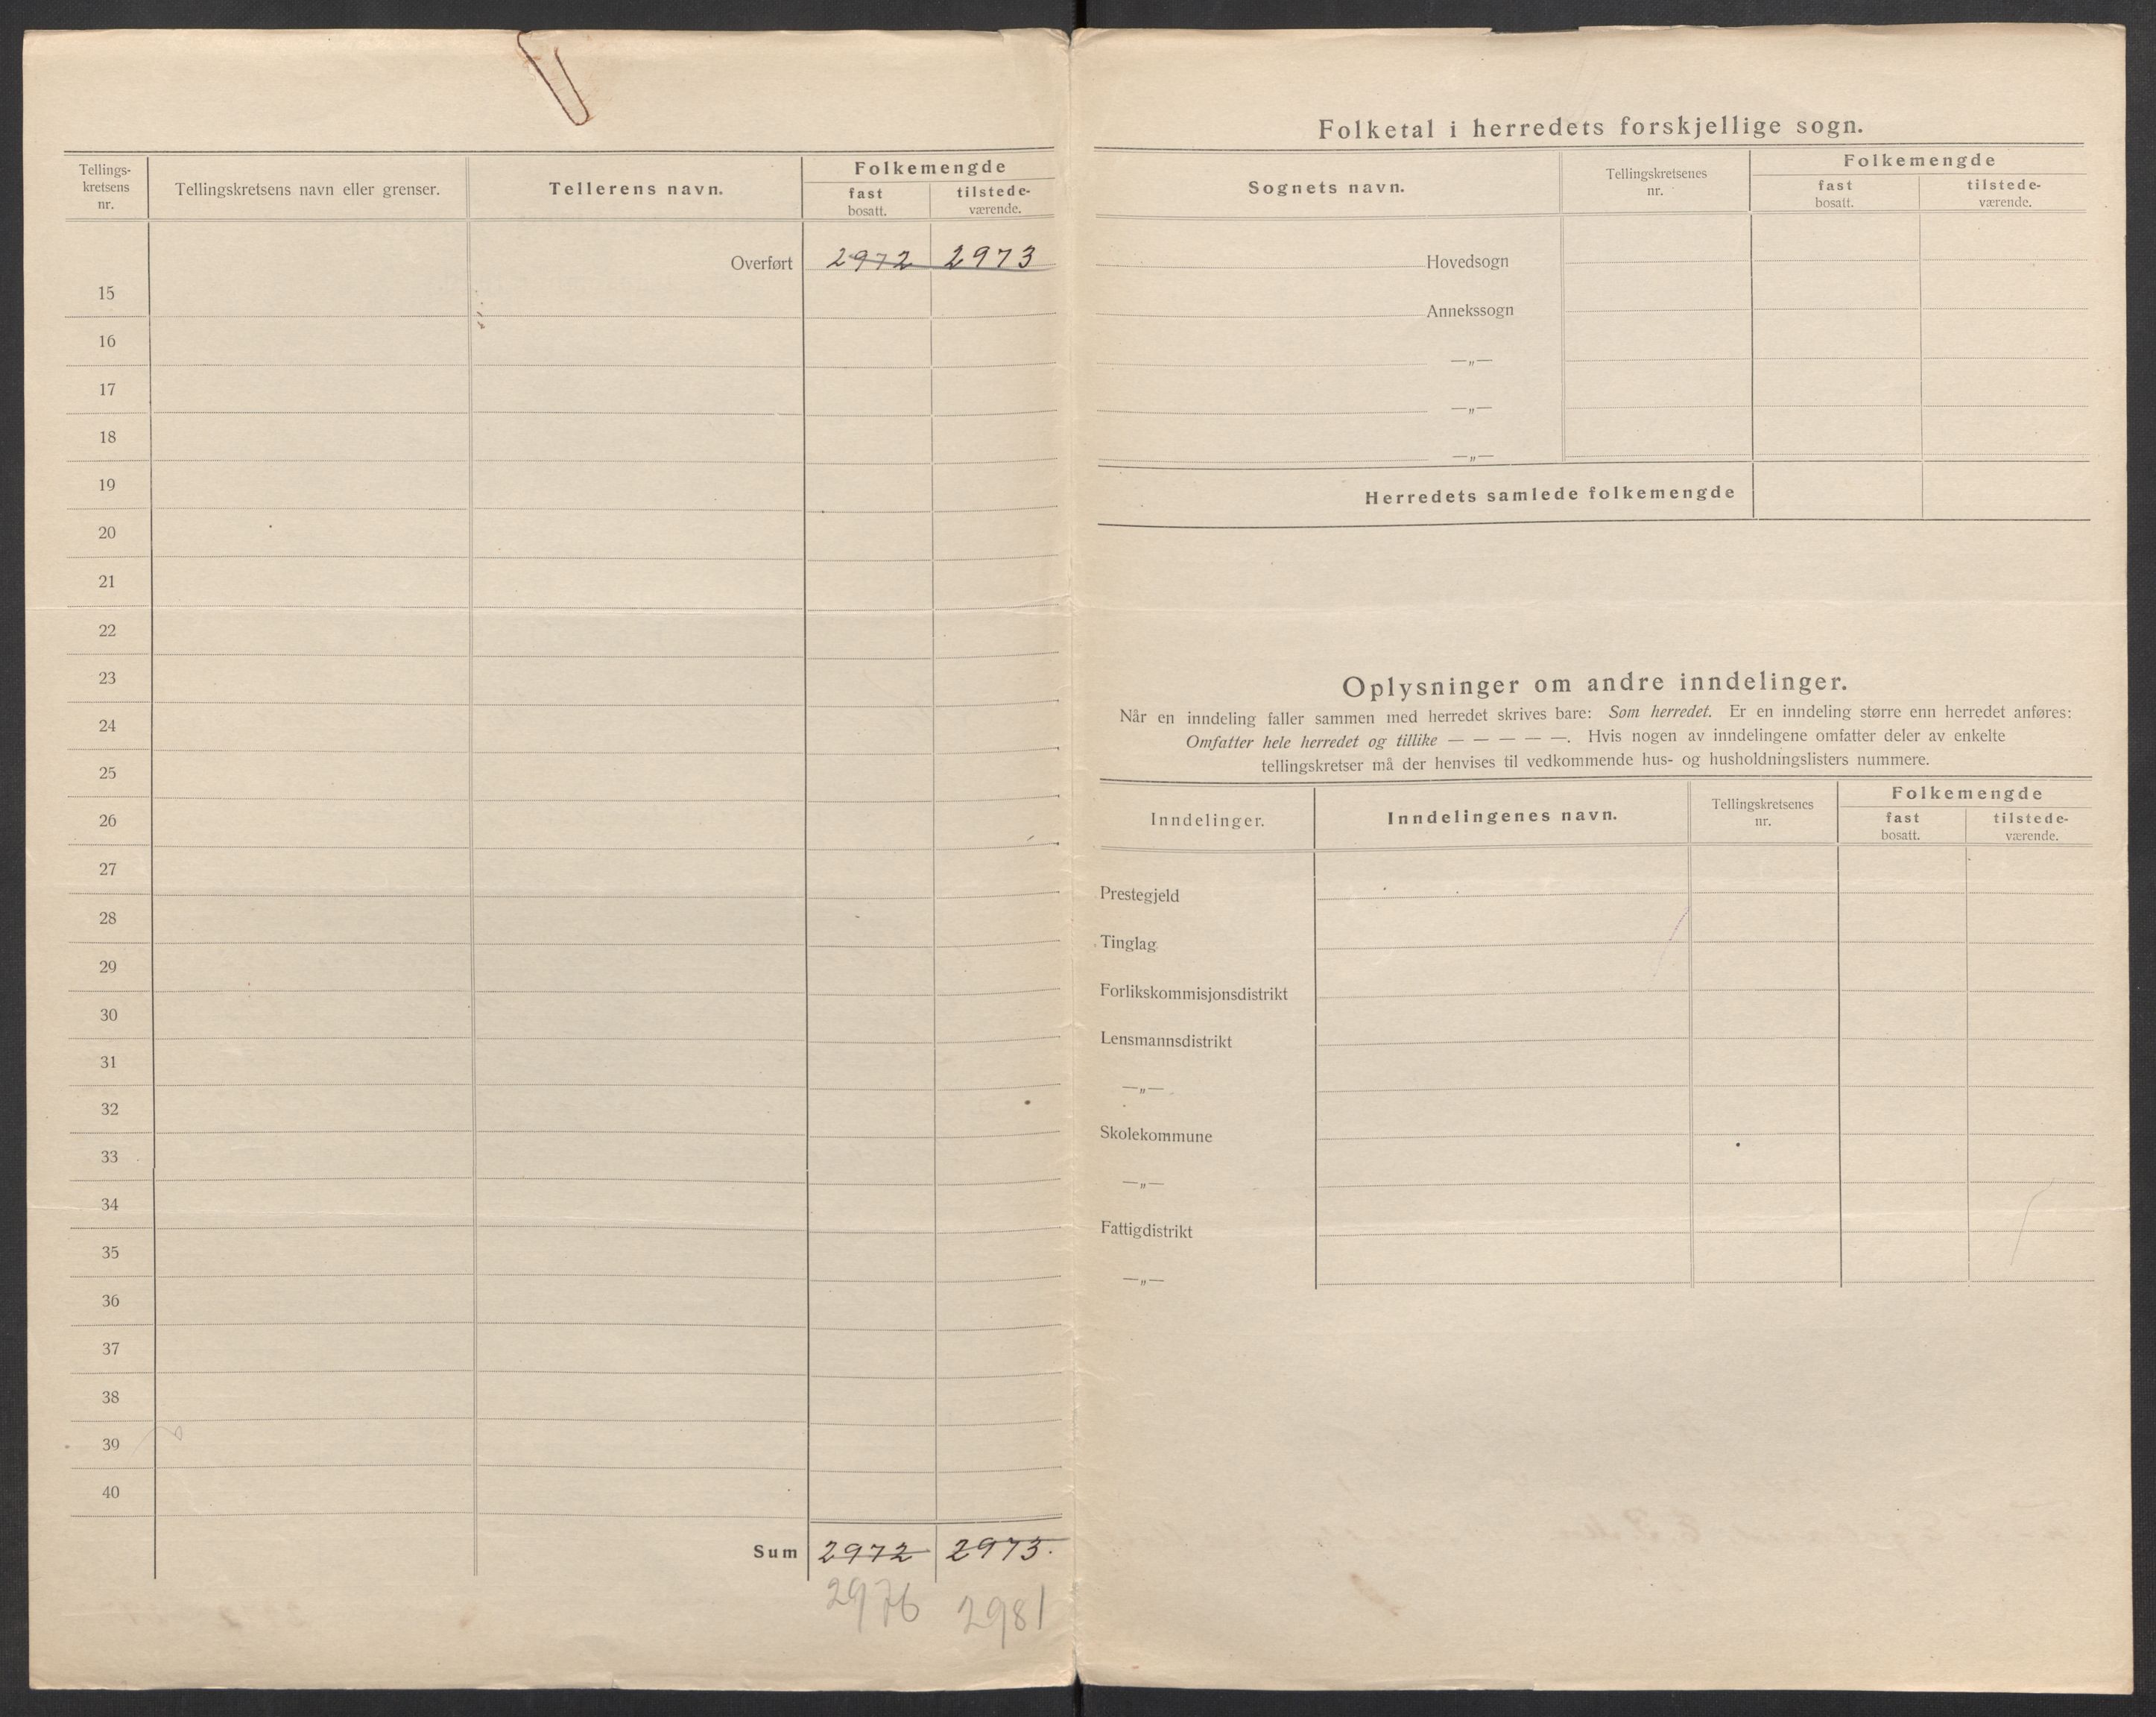 Tellings-
kretsens
nr.
Tellingskretsens navn eller grenser.
Tellerens navn.
Folkemengde
fast
bosatt.
tilstede-
værende.
Overført 2972 2973
15
16
17
18
19
20
21
22
23
24
25
26
27
28
29
30
31
32
33
34
35
36
37
38
39
40
Sum 2972 2973.
2976 2981
Folketal i herredets forskjellige sogn.
Sognets navn.
Tellingskretsenes
nr.
Folkemengde
fast
bosatt.
tilstede-
værende.
Hovedsogn
Annekssogn
—„—
—„—
—„—
Herredets samlede folkemengde
Oplysninger om andre inndelinger.
Når en inndeling faller sammen med herredet skrives bare: Som herredet. Er en inndeling større enn herredet anføres:
Omfatter hele herredet og tillike — — — — —. Hvis nogen av inndelingene omfatter deler av enkelte
tellingskretser må der henvises til vedkommende hus- og husholdningslisters nummere.
Inndelinger.
Inndelingenes navn.
Tellingskretsenes
nr.
Folkemengde
fast
bosatt.
tilstede-
værende.
Prestegjeld
Tinglag
Forlikskommisjonsdistrikt
Lensmannsdistrikt
—„—
Skolekommune
—„—
Fattigdistrikt
—„—